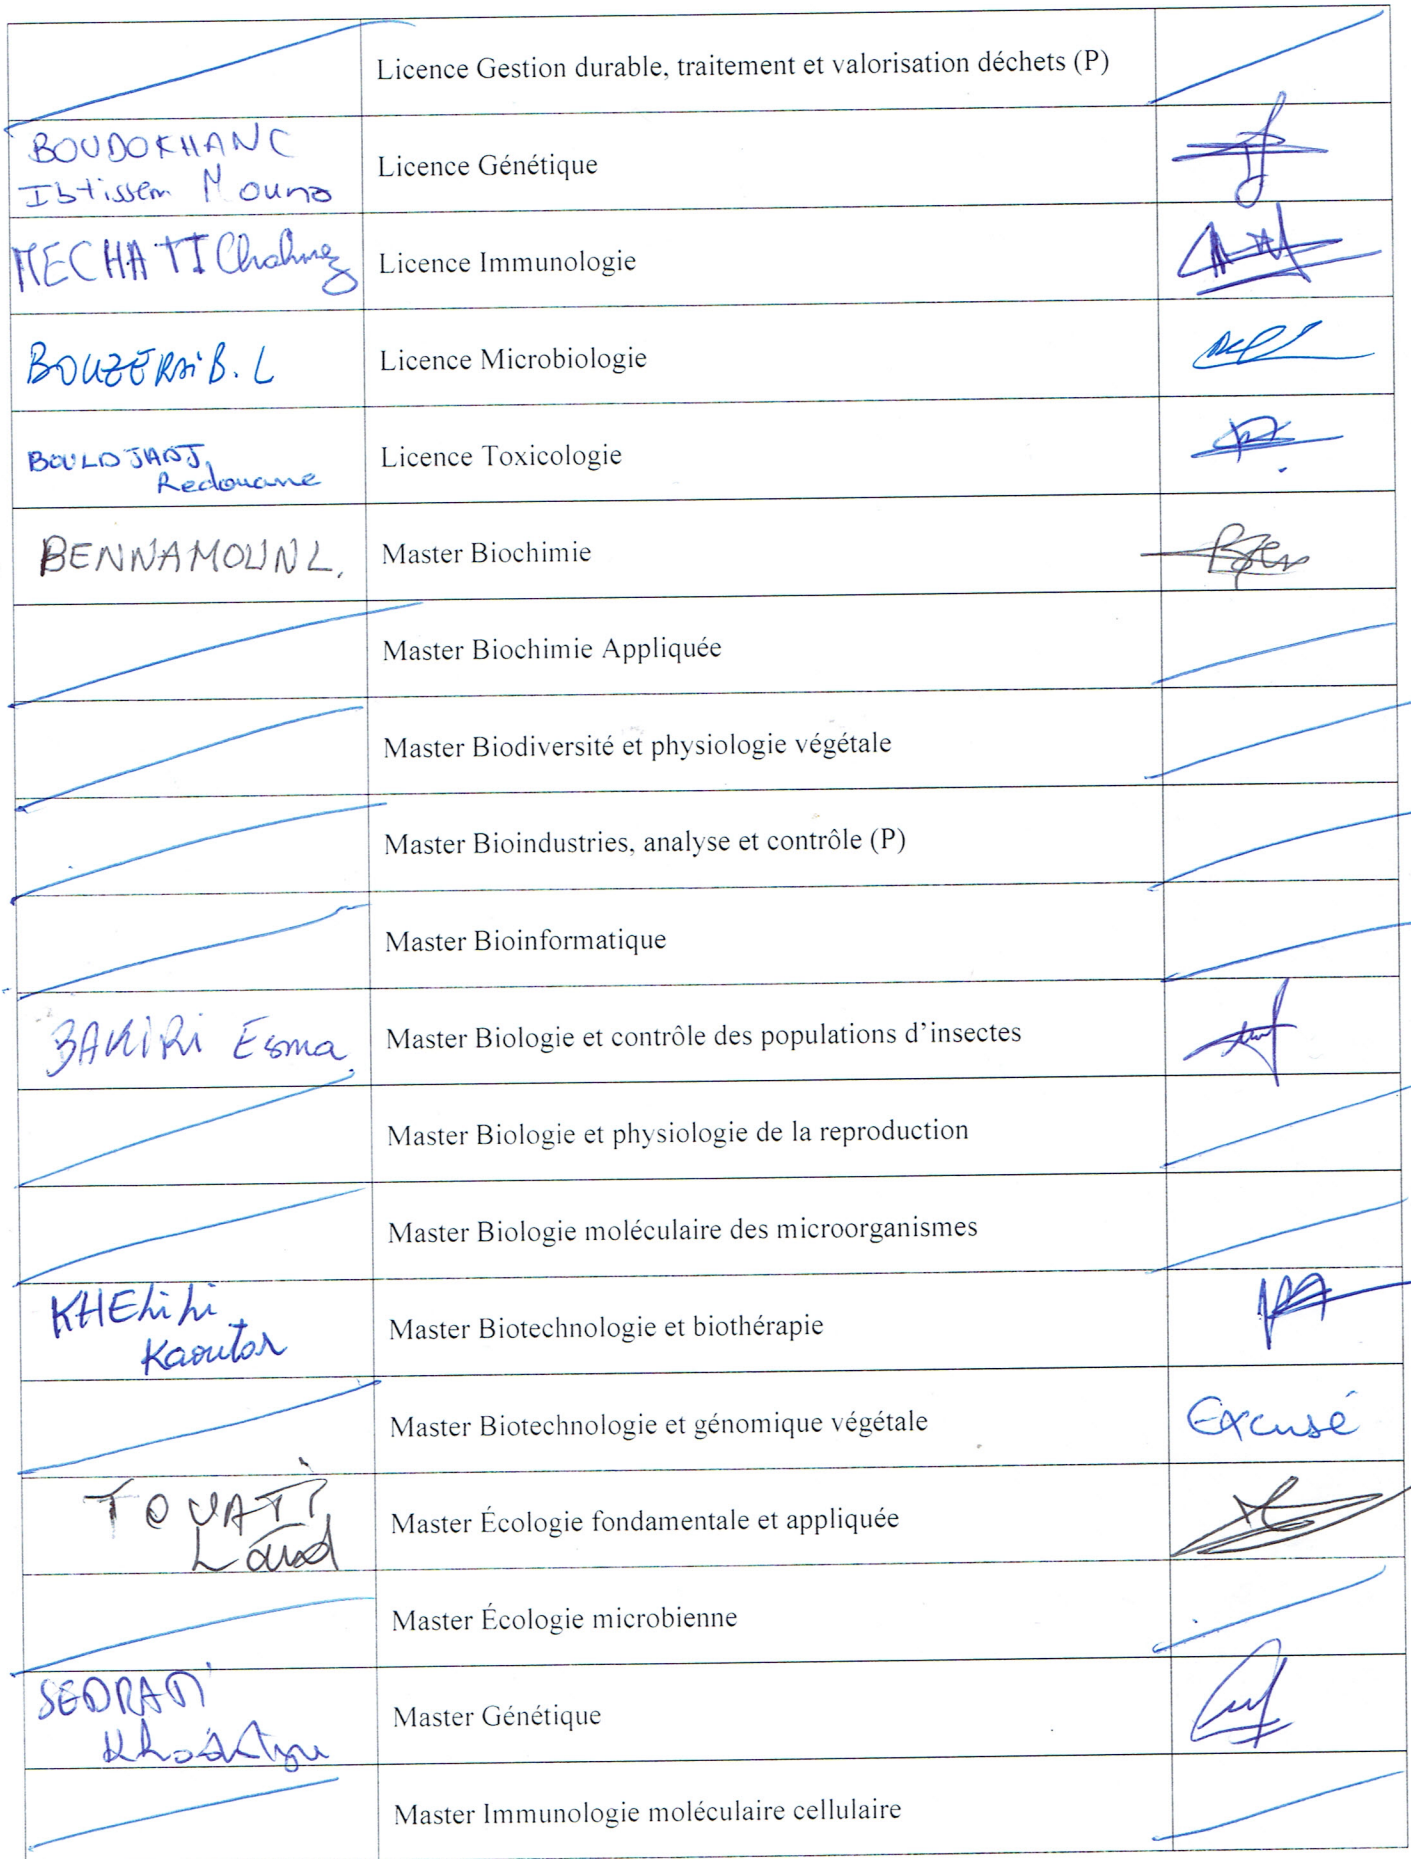 Licence Gestion durable, traitement et valorisation déchets (P)
BOUDOKHANC
Ibtissem Mouna
Licence Génétique
MECHATI Chahinez
Licence Immunologie
BOUZERAIB. L
Licence Microbiologie
BOULDJADJ
Redouane
Licence Toxicologie
BENNAMOUN L.
Master Biochimie
Master Biochimie Appliquée
Master Biodiversité et physiologie végétale
Master Bioindustries, analyse et contrôle (P)
Master Bioinformatique
BAKIRI Esma
Master Biologie et contrôle des populations d’insectes
Master Biologie et physiologie de la reproduction
Master Biologie moléculaire des microorganismes
KHELILI
Kaoutar
Master Biotechnologie et biothérapie
Master Biotechnologie et génomique végétale
Excusé
TOUATI
Master Écologie fondamentale et appliquée
Master Écologie microbienne
SEDRATI
Master Génétique
Master Immunologie moléculaire cellulaire